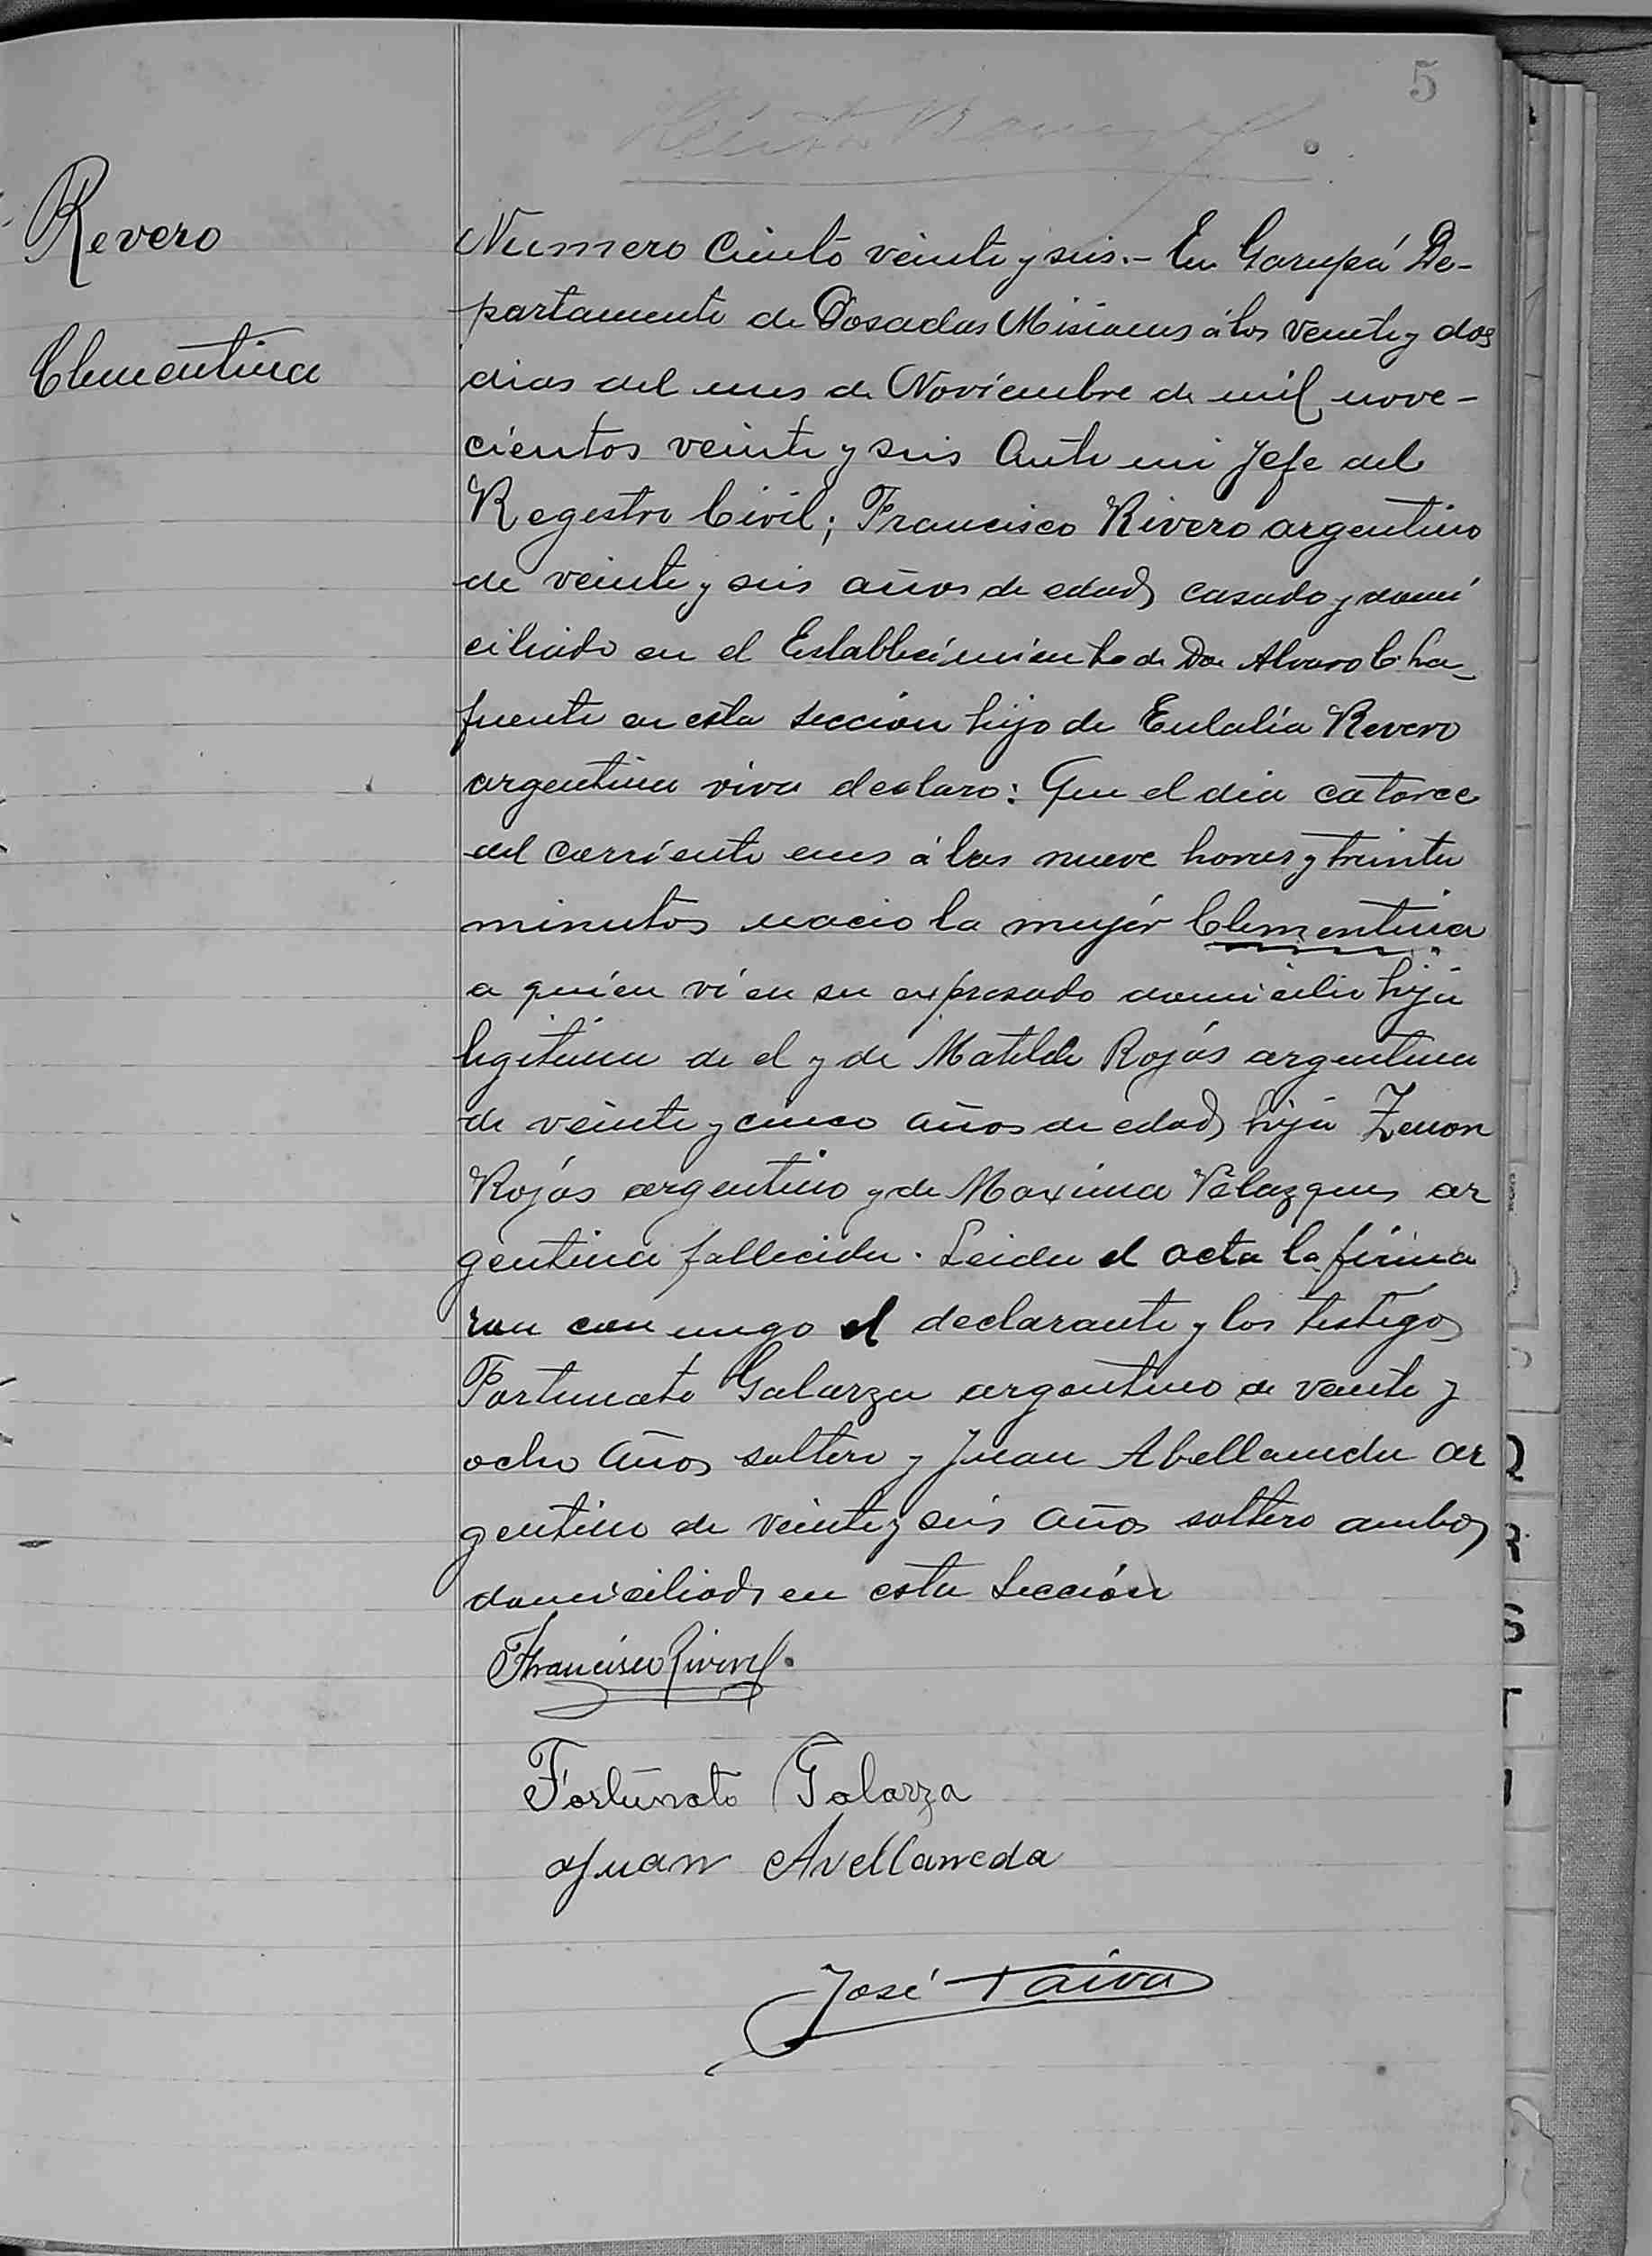 5
Revero
Clementina
Numero Ciento veinte y seis.- En Garupá De-
partamento de Posadas Misiones á los veinte y dos
dias del mes de Noviembre de mil nove-
cientos veinte y seis Ante mi Jefe del
Registro Civil; Francisco Rivero argentino
de veinte y seis años de edad casado y domi
ciliado en el Establecimiento de Don Alvaro C. La-
fuente en esta sección hijo de Eulalia Revero
argentina viva declaro: Que el dia catorce
del corriente mes á las nueve horas y treinta
minutos nacio la mujér Clementina
a quien ví en su expresado domicilio hija
legitima de el y de Matilde Rojás argentina
de veinte y cinco años de edad hija Zenon
Rojás argentino y de Maxima Velazques ar
gentina fallecida. Leida el acta la firma
ron con migo el declarante y los testigos
Fortunato Galarza argentino de veinte y
ocho años soltero y Juan Abellaneda ar
gentino de veinte y seis años soltero ambos
domiciliados en esta Sección
Francisco Rivero
Fortunato Galarza
Juan Avellaneda
José Paiva
Q
R
S
T